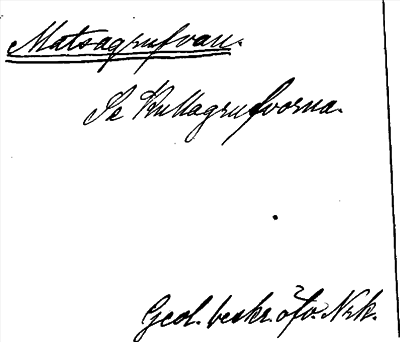 Matsagrufvan.
Se Kullagrufvorna.
Geol. beskr. öfv. Nrk.